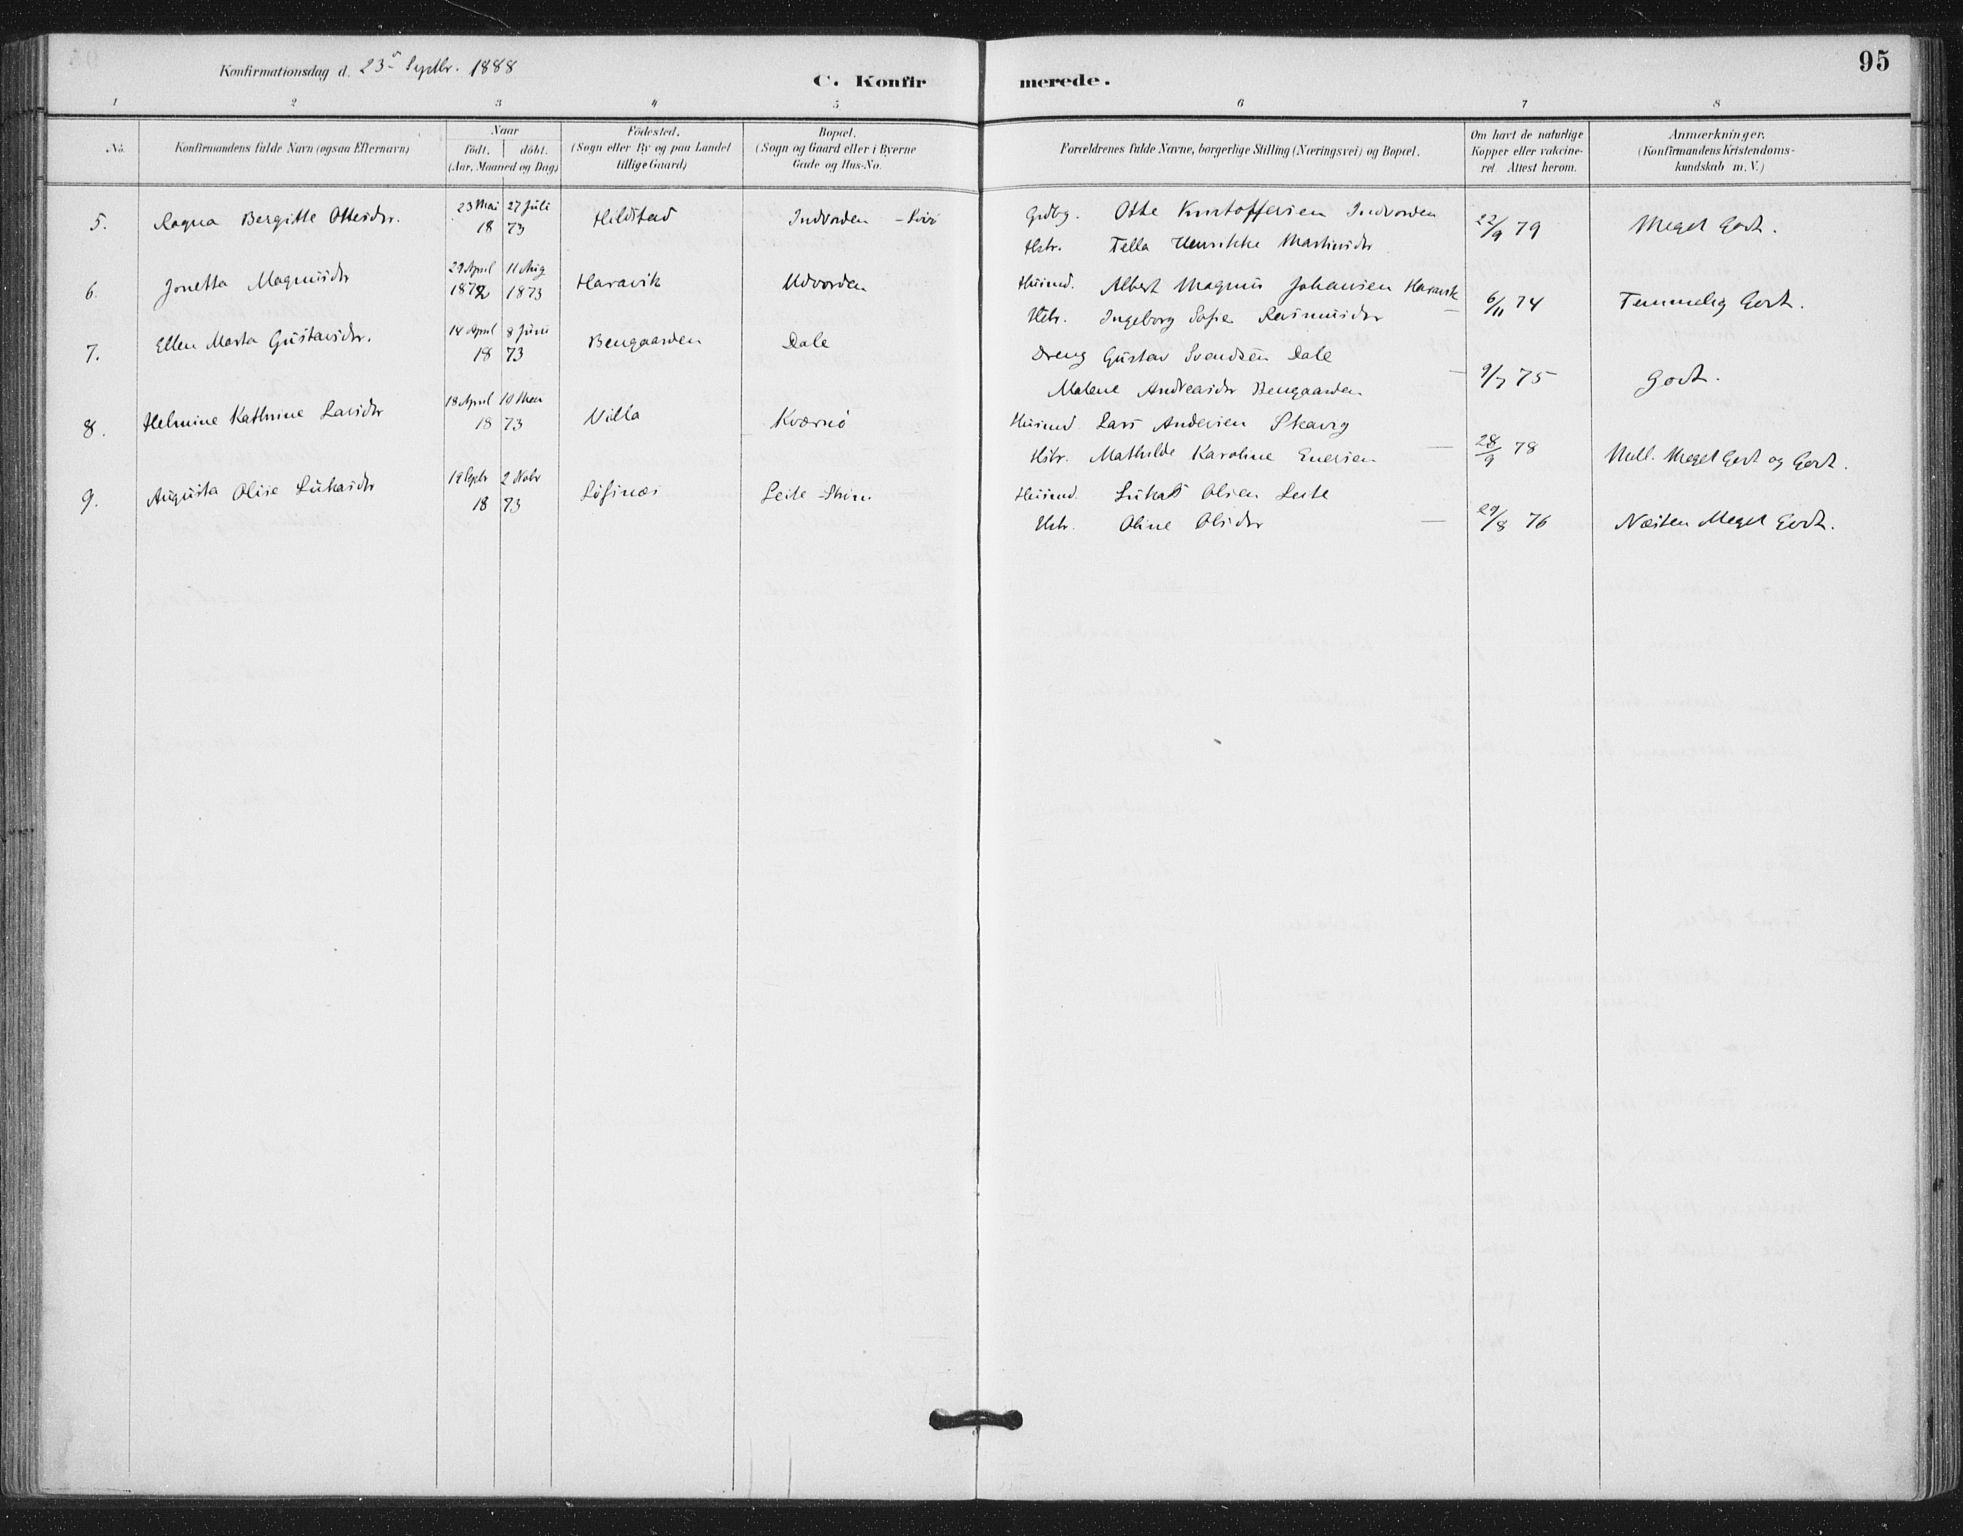 95
Konfirmationsdag d. 23 Septbr. 1888
C. Konfirmerede.
1 2 3 4 5 6 7 8
No. Konfirmandens fulde Navn (ogsaa Efternavn) Naar födt. döbt. (Aar, Maaned og Dag) Födested. (Sogn eller By og paa Landet tillige Gaard) Bopæl. (Sogn og Gaard eller i Byerne Gade og Hus-No. Forældrenes fulde Navne, borgerlige Stilling (Næringsvei) og Bopæl. Om havt de naturlige Kopper eller vakcineret. Attest herom. Anmærkninger. (Konfirmandens Kristendomskundskab m. V.)
5. Ragna Bergitte Ottesdr. 23 Mai 27 Juli 18 73 Hildstad Indvorden Grdbg. Otte Kristoffersen Indvorden 22/9 79 Meget Godt.
Hstr. Henrikke Martinsdr
6. Jonetta Magnusdr 29 April 11 Aug 1872 1873 Haravik Udvorden Husmd. Albert Magnus Johansen Haravik 6/11 74 Temmelig Godt.
Hstr. Ingeborg Sofie Rasmusdr —
7. Ellen Marta Gustavsdr. 14 April 8 Juni 18 73 Bengaarden Dale Dreng Gustav Svendsen Dale 9/7 75 Godt.
Malene Andreasdr Bengaarden —
8. Helmine Kathrine Larsdr 18 April 18 73 Villa Kværnö Husmd. Lars Andersen 28/9 78 Mell. Meget Godt og Godt.
Hstr. Mathilde Karoline —
9. Augusta Olise Lukasdr 19 Septr 2 Nobr 18 73 Löfsnæs Leite Husmd. Lukas Olsen Leite 29/8 76 Næsten Meget Godt.
Hstr. Oline Olsdr —